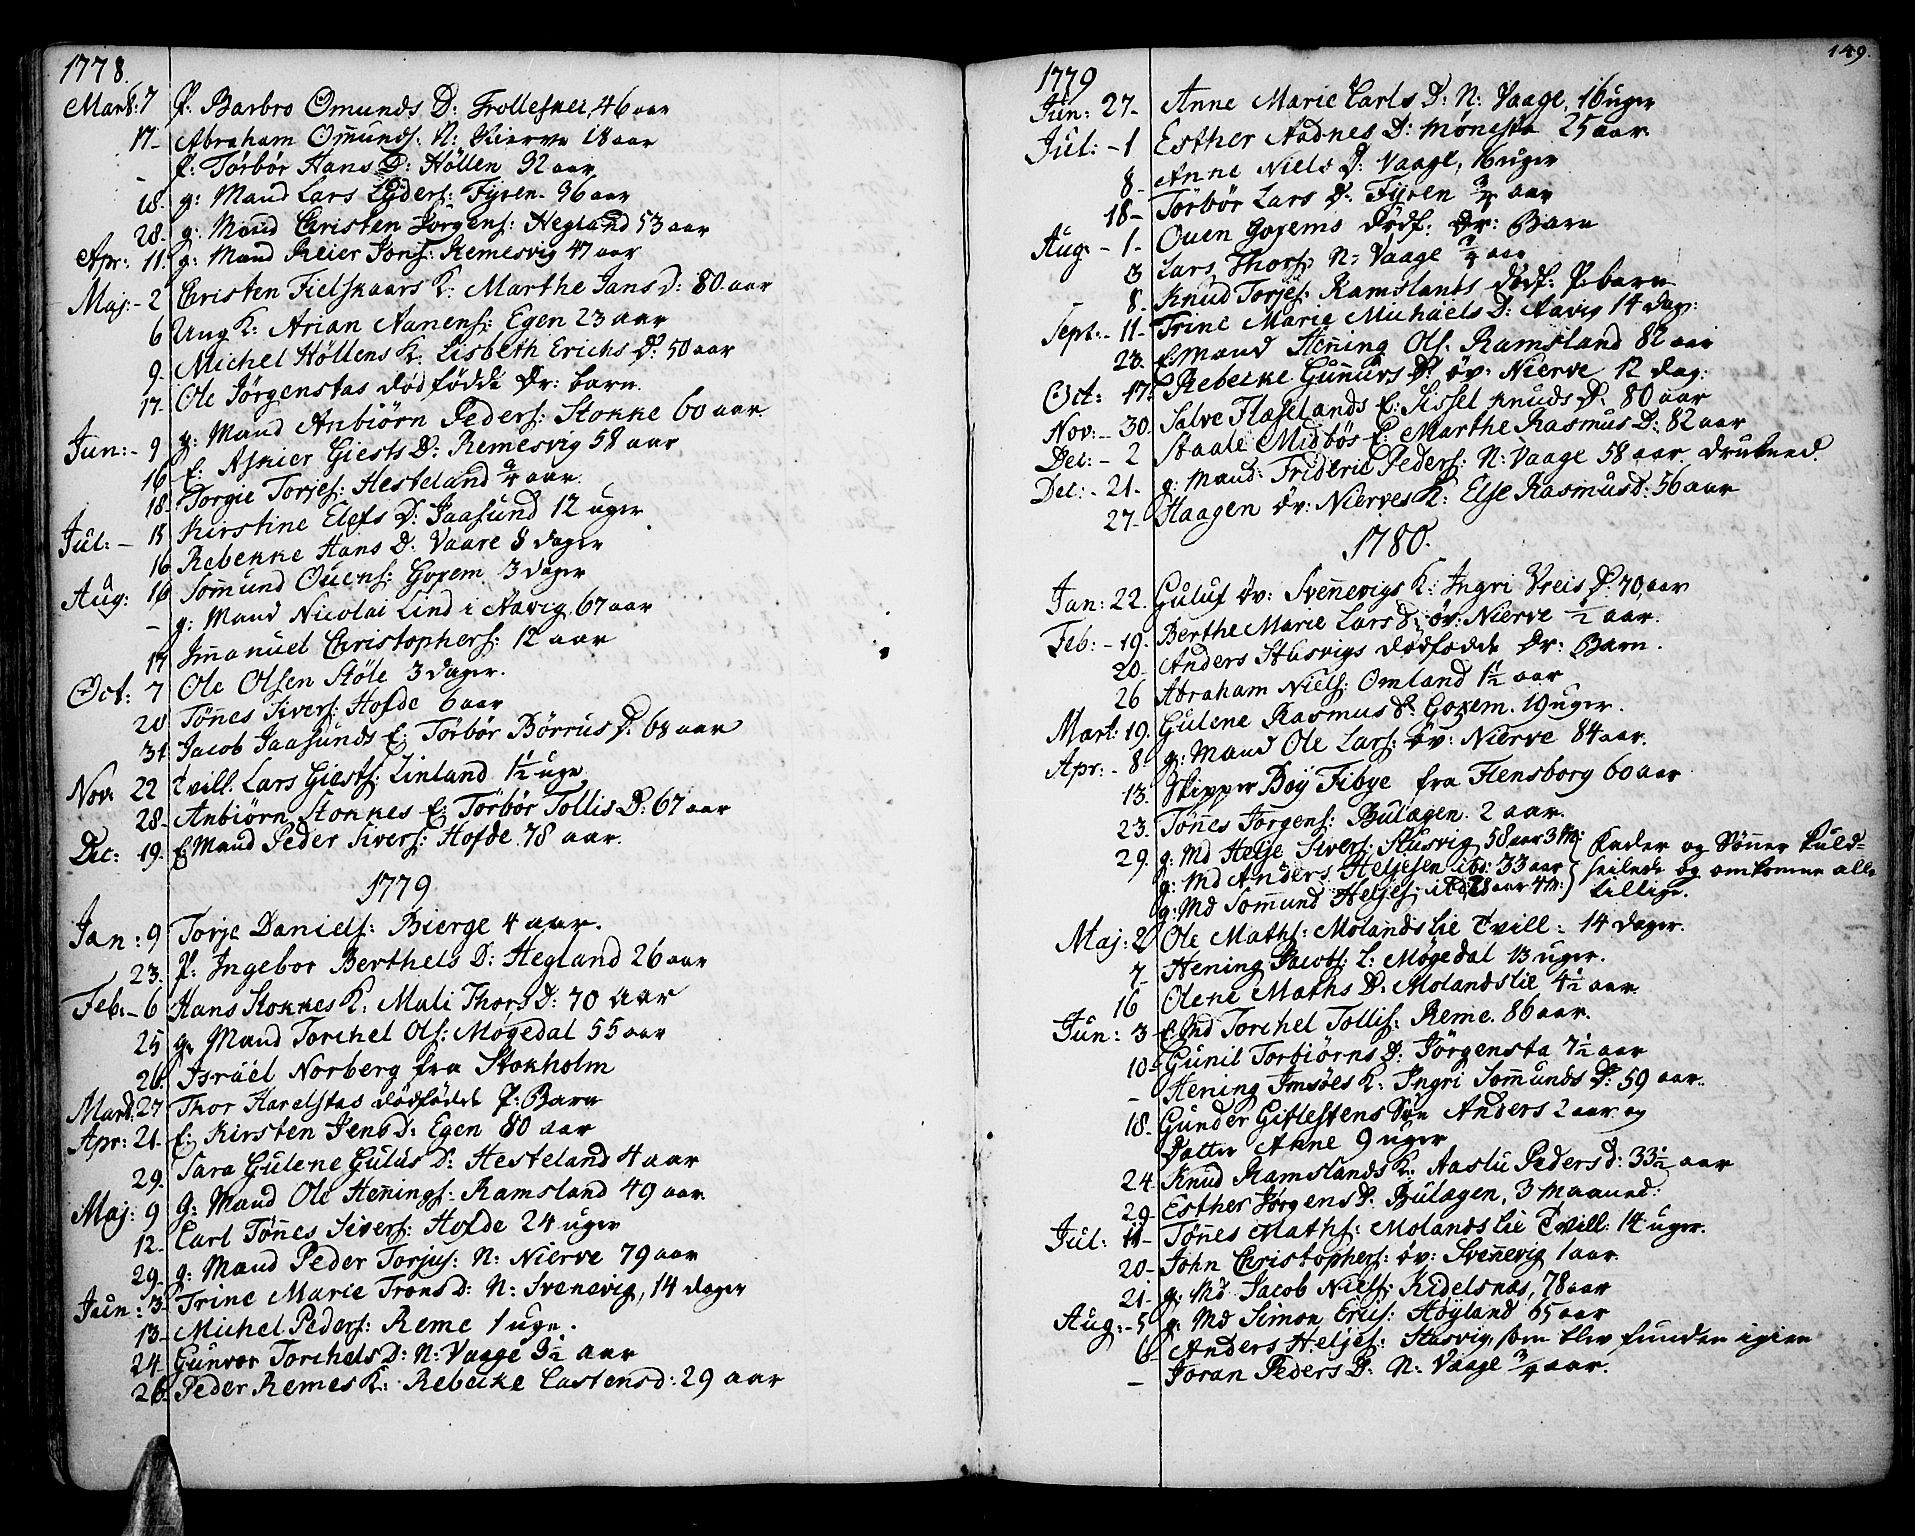 1778.
Mart: 7 P. Barbro Omunds D: Trollesnes, 46 aar
17- Abraham Omunds: N: Nierve 18 aar
- P. Törbör Hans D: Höllen 92 aar
18. g: Mand Lars Lyders: Fyren. 36 aar
28. g: Mand Christen Jorgens: Hegland 53 aar
Apr: 11. g: Mand Reier Jons: Remesvig 47 aar
Maj: - 2 Christen Fielskaars K: Marthe Jans D: 80 aar
6 Ung K: Arian Aanens: Egen 23 aar
9. Michel Höllens K: Lisbeth Erichs D: 50 aar
17. Ole Jörgenstas dödfödde Dr: barn.
Jun: - 9 g: Mand Anbiörn Peders: Stokke 60 aar
16 E: Asnier Giests D: Remesvig 58 aar
18. Torgie Torjes: Hesteland aar.
Jul: - 15 Kirstine Elefs D: Jaasund 12 uger
16 Rebekke Hans D: Vaare 8 dager
Aug: 16 Somund Ouens: Goxem 3 dager
- g: Mand Nicolai Lind i Aavig 67 aar
17 Immanuel Christophers: 12 aar
Oct: 7 Ole Olsen Stöle 3 dager.
20 Tönnes Sivers: Hofde 6 aar
31 Jacob Jaasunds E: Törbör Börrus D: 68 aar
Nov: 22 tvill. Lars Giests: Linland 1½ uge
28. Anbiörn Stokkes E: Törbör Tollis D: 67 aar
Dec: 19. E Mand Peder Sivers: Hofde. 78 aar.
1779
Jan: 9 Torje Daniels: Bierge 4 aar.
23. P: Ingebor Berthels D: Hegland 26 aar
Feb: - 6 Hans Stokkes K: Mali Thors D: 70 aar
25 g: Mand Torchel Ols: Mögedal 55 aar
26. Israël Norberg fra Stokholm
Mart: 27 Thor Harelstas dödfödde P: Barn
Apr: 21. E: Kirsten Jens D: Egen 80 aar
29. Sara Gulene Gulus D: Hesteland 4 aar
Maj: 9 G: Mand Ole Hennings: Ramsland 49 aar
12. Carl Tönnes Sivers: Hofde 24 uger
29. g: Mand Peder Torjus: N: Nierve 79 aar
Jun: 3- Trine Marie Trons D: N: Svenevig, 14 dager
13- Michel Peders: Reme 1 uge.
24. Gunvor Torchels D: N: Vaage 3½ aar
26. Peder Remes K: Rebecke Castens D: 29 aar
149.
1779
Jun: 27- Anne Marie Carls D: N: Vaage, 16 uger
Jul: - 1 Esther Aadnes D: Mönesta 25 aar
8. Anne Niels D: Vaage, 16 uger
18- Törbör Lars D: Fyren ¾ aar
Aug: - 1- Ouen Goxems Dödf: Dr: Barn
3 Lars Thors: N: Vaage ¾ aar
8. Knud Torjes: Ramslands dödf: P. barn
Sept: - 11- Trine Marie Michaels D: Aavig 14 dag:
23. E: Mand Hening Ols: Ramsland 82 aar
Oct: 17. Rebecke Gunurs D: öv: Nierve 12 dag:
Nov: - 30. Salve Flaselands E: Sissel Knuds D: 80 aar
Dec: - 2 Staale Midbös E: Marthe Rasmus D: 82 aar
Dec: - 21- g: Mand: Frideric Peders: N: Vaage 58 aar drukned.
27- Haagen öv: Nierves K: Else Rasmus D: 56 aar
1780.
Jan: 22. Guluf öv: Svennevigs K: Ingri Vreis D: 70 aar
Feb: - 19. Berthe Marie Lars D: öv: Nierve ½ aar.
20- Anders Stusvigs dödfödde Dr: Barn.
26 Abraham Niels: Omland 1½ aar
Mart: 19. Gulene Rasmus D: Goxem. 19 uger.
Apr: - 8. g: Mand Ole Lars: öv: Nierve 84 aar.
13. Skipper Boy Fibye fra Flensborg 60 aar
23. Tönnes Jorgens: Bulægen. 2 aar.
29. g: Md Helje Sivers: Stusvig 58 aar 3 M:
g: Md Anders Heljesen ibd: 33 aar
g: Md Somund Heljes: ibd: 28 aar 4 M:
Fader og Sönner kuld=
seilede og omkomme alle
tillige.
Maj: 2 Ole Maths: Molandslie Tvill: 14 dager.
7- Hening Jacobs: L: Mögedal 13 uger.
16 Olene Maths D: Molandslie 4½ aar
Jun: 3- E: Md Torchel Tollis: Reme. 86 aar.
10- Gunil Torbiörns D: Jörgensta 7½ aar
- Hening Imsöes K: Ingri Sommunds D: 59 aar.
18. Gunder Giflestens Sön Anders 2 aar og
Datter Anne 9 uger
24 Knud Ramslands K: Aaslu Peders D: 33½ aar
29- Esther Jörgens D: Bulægen, 3 Maaned:
Jul: 11- Tönnes Maths: Molandslie Tvill: 14 uger.
20- John Christophers: öv: Svennevig 1 aar.
21- g: Md. Jacob Niels: Kidelsnas, 78 aar
Aug: - 5 g: Md Simon Erics: Höyland 65 aar
6 Anders Heljes: Stusvig, som blev funden igien
- Joran Peders D: N: Vaage ¾ aar.